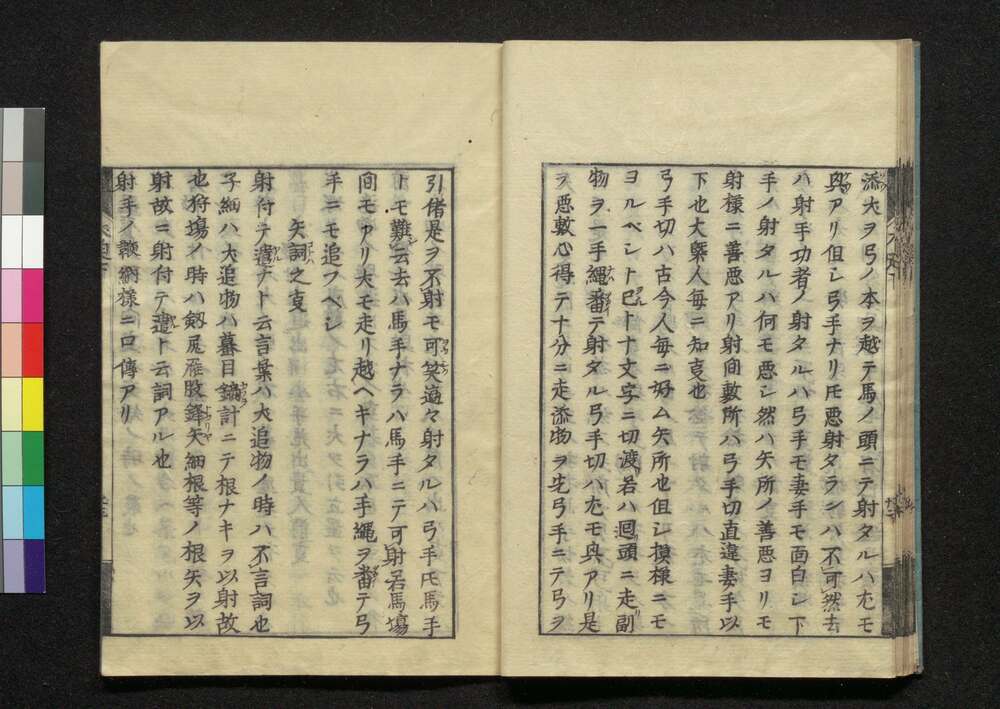 添犬ヲ弓ノ本ヲ越テ馬ノ頭ニテ射タルハ尤モ
興アリ但シ弓手ナリ𪜈悪射タランハ不可然去
ハ射手功者ノ射タルハ弓手モ妻手モ面白シ下
手ノ射タルハ何モ悪シ然ハ矢所ノ善悪ヨリモ
射様ニ善悪アリ射間數所ハ弓手切直違妻手以
下也大槩人毎ニ知叓也
弓手切ハ古今人毎ニ好ム矢所也但シ摸様ニモ
ヨルベシト巳ト十文字ニ切渡若ハ廻頭ニ走副
物ヲ一手縄番テ射タル弓手切ハ尤モ興アリ是
ヲ悪數心得テ十分ニ走添物ヲ先弓手ニテ弓ヲ
引偖是ヲ不射モ可笑適々射タルハ弓手𪜈馬手
トモ難云去ハ馬手ナラハ馬手ニテ可射若馬塲
間モアリ犬モ走リ越ヘキナラハ手縄ヲ番テ弓
手ニモ追フベシ
矢詞之叓
射付テ遣ナト云言葉ハ犬追物ノ時ハ不言詞也
子細ハ犬追物ハ蟇目鏑計ニテ根ナキヲ以射故
也狩塲ノ時ハ劔尻雁股鋒矢細根等ノ根矢ヲ以
射故ニ射付テ遣ト云詞アル也
射手ノ網樣ニ口傳アリ